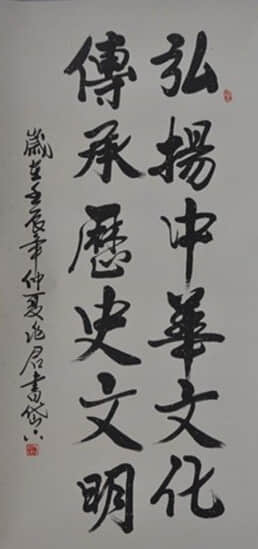 弘揚中華文化
傳承歷史文明
歲在壬辰年仲夏兆君書岱下